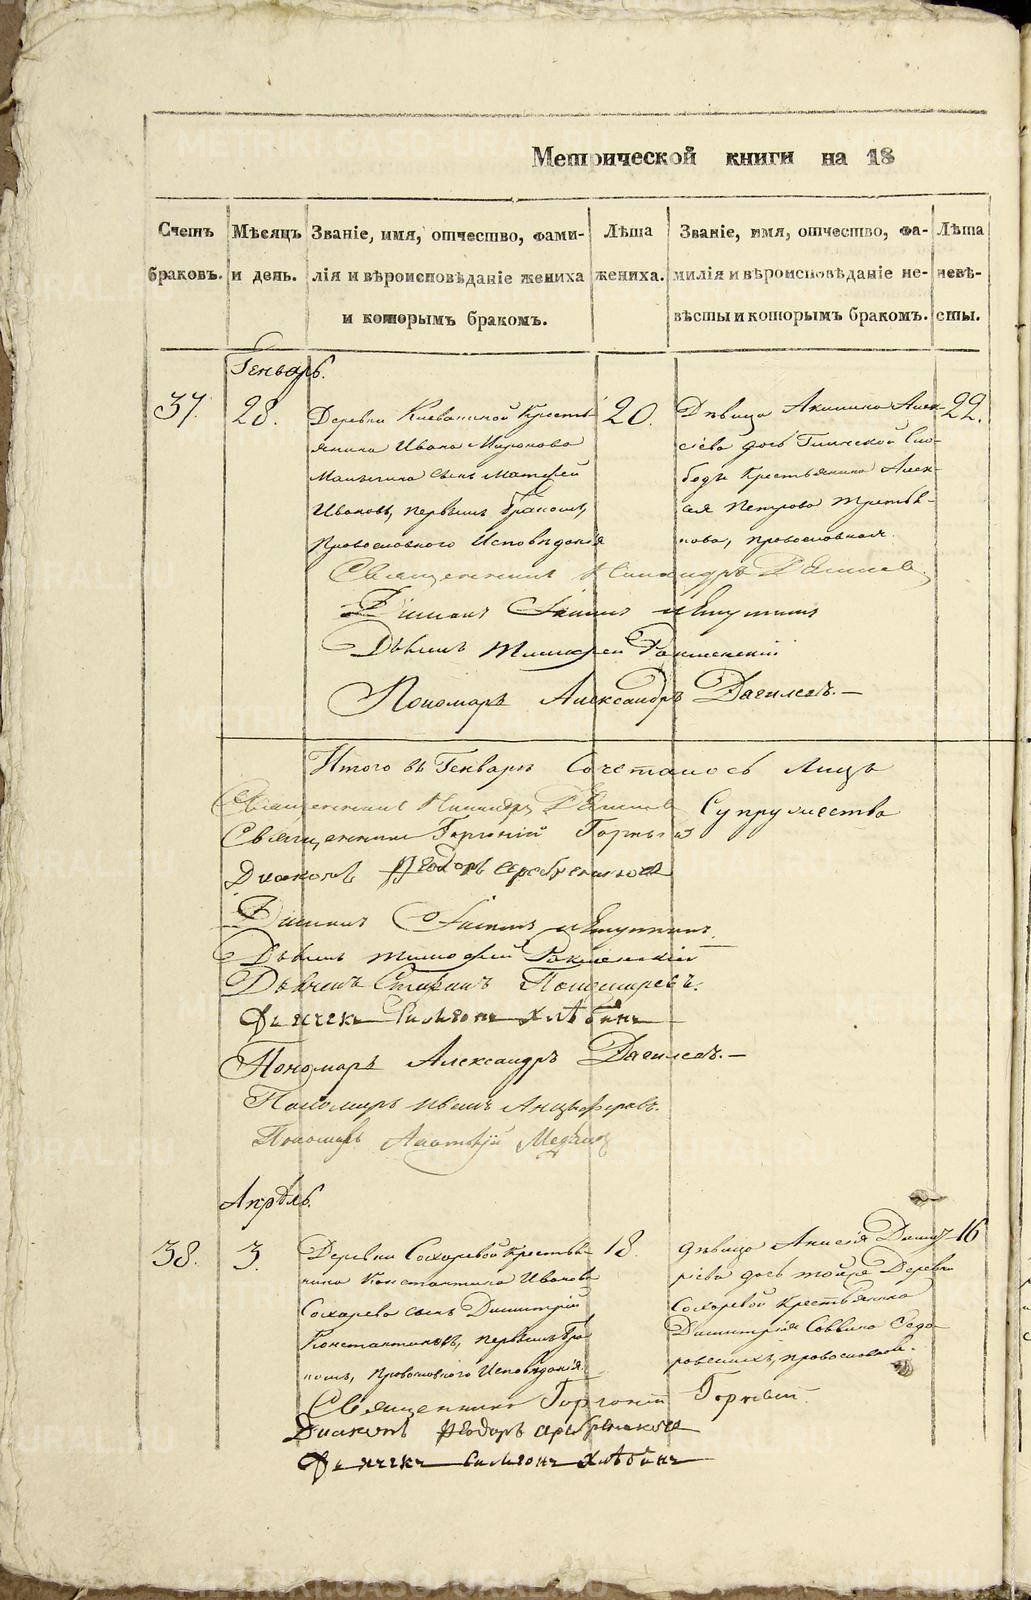 Метрической книги на 18
Счетъ браковъ.
Мѣсяцъ и день.
Званіе, имя, отчество, фами-
лія и вѣроисповѣданіе жениха
и которымъ бракомъ.
Лѣта жениха.
Званіе, имя, отчество, фа-
милія и вѣроисповѣданіе не-
вѣсты и которымъ бракомъ.
Лѣта невѣ-
сты.
Генварь.
37.
28.
Деревни Кресть
янина Ивана Миронова
сынъ Матѳей
Ивановъ, первымъ бракомъ,
Православнаго Исповѣданія
20.
Дѣвица Акилина Алек
сіева дочь Слo-
боды Крестьянина Алек-
сія Петрова Третья-
кова, православная.
22.
Священникъ
Діаконъ
Дьячекъ Тимофей
Пономарь Александръ
Итого въ Генварѣ Сочеталось Лицъ
Супружества
Священникъ
Священникъ Горгоній Горныхъ
Діаконъ Ѳеодоръ Серебренниковъ
Діаконъ
Дьячекъ Тимофей
Дьячекъ Стефанъ Пономаревъ.
Дьячекъ Симеонъ Хлѣбинъ
Пономарь Александръ
Пономарь Иванъ Анцыферовъ.
Пономарь
Апрѣль.
38.
3.
Деревни Сохаревой Крестья
нина Константина Иванова
Сохарева сынъ Димитрій
Константиновъ, первымъ бра
комъ, Православнаго Исповѣданія.
18.
Дѣвица Анисія Димит
ріева дочь тойже Деревни
Сохаревой Крестьянина
Димитрія Саввина
православная.
16
Священникъ Горгоній Горныхъ
Діаконъ Ѳеодоръ Серебренниковъ
Дьячекъ Симеонъ Хлѣбинъ
METRIKI.GASO-URAL.RU